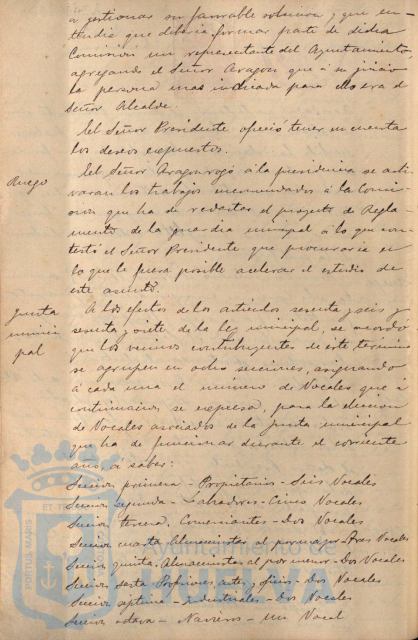 a gestionar su favorable solucion y que en-
tendia que deberia formar parte de dicha
Comision un representante del Ayuntamiento,
agregando el Señor Aragon que á su juicio
la persona mas indicada para ello era el
Señor Alcalde.
El Señor Presidente ofreció tener en cuenta
los deseos expuestos.
Ruego
El Señor Aragon rogó á la presidencia se acti-
varan los trabajos encomendados á la Comi-
sion que ha de redactar el proyecto de Regla-
mento de la guardia municipal á lo que con-
testó el Señor Presidente que procuraria en
lo que le fuera posible acelerar el estudio de
este asunto.
Junta
munici
pal
A los efectos de los articulos sesenta y seis y
sesenta y siete de la ley municipal, se acordó
que los vecinos contribuyentes de este termino
se agrupen en ocho secciones, asignando
á cada una el número de Vocales que á
continuacion se expresa, para la eleccion
de Vocales asociados de la Junta municipal
que ha de funcionar durante el corriente
año, á saber:
Seccion primera - Propietarios - Seis Vocales
Seccion segunda - Labradores - Cinco Vocales
Seccion tercera, Comerciantes - Dos Vocales
Seccion cuarta Almacenistas al por mayor - Tres Vocales
Seccion quinta, Almacenistas al por menor - Dos Vocales
Seccion sexta Profesiones, artes y oficios - Dos Vocales
Seccion septima - Industriales - Dos Vocales
Seccion octava - Navieros - un Vocal
PORTUS MAGNIS
ET TI
Ayuntamiento de